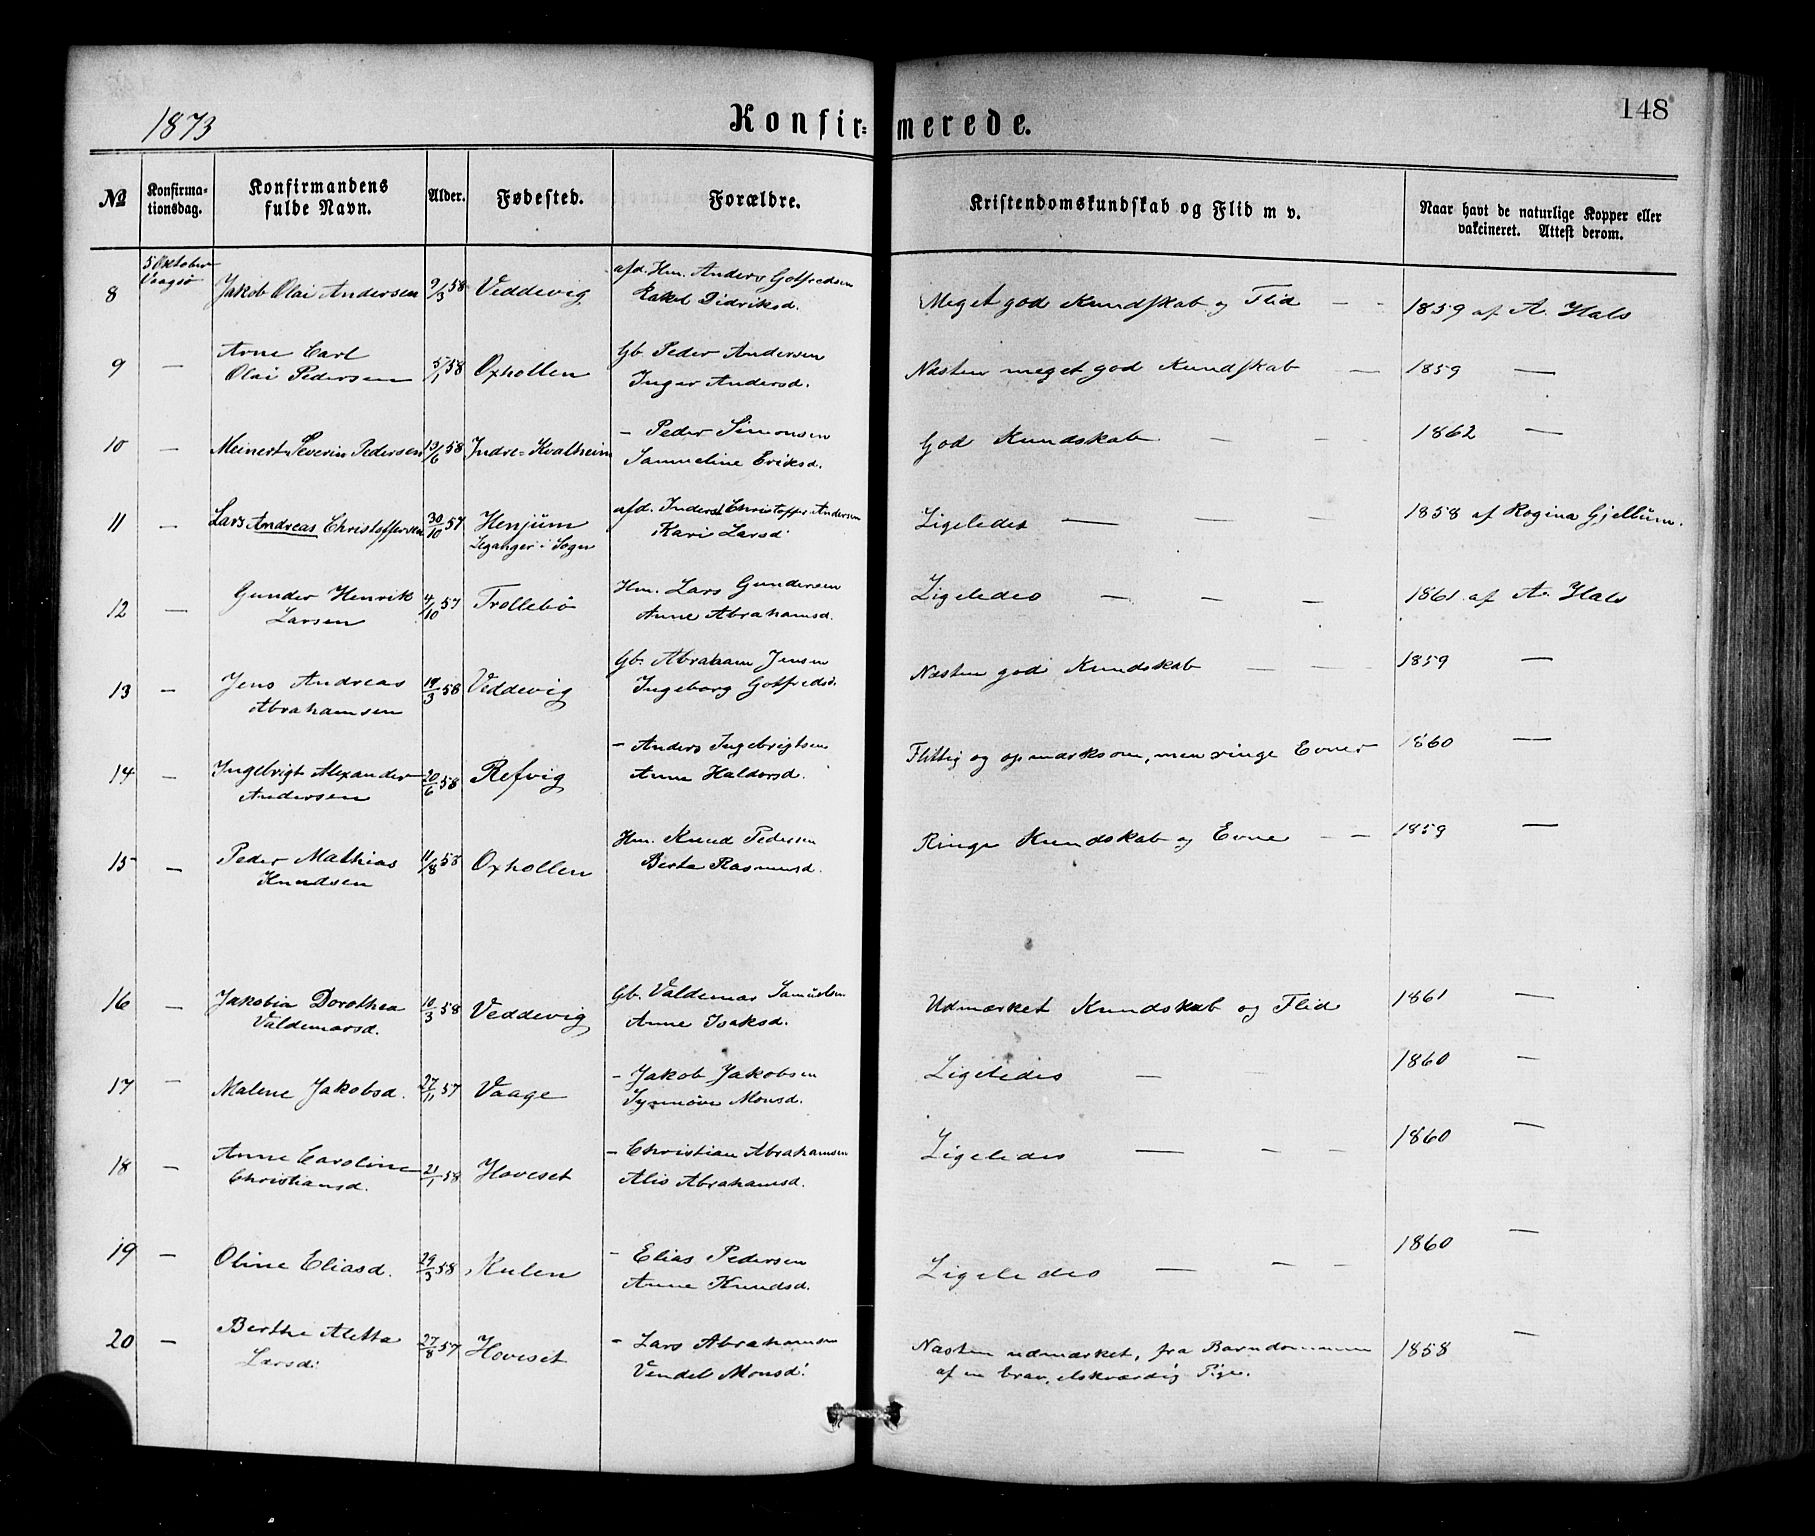 1873
Konfir=merede.
148
№
Konfirma-
tionsdag.
Konfirmandens
fulde Navn.
Alder.
Fødested.
Forældre.
Kristendomskundskab og Flid m v.
Naar havt de naturlige Kopper eller
vakcineret. Attest derom.
5 Oktober
Vaagsø
8 Jakob Olai Andersen 9/3 58 Veddevig afd. Hm. Anders Gotfredsen
Rakel Didriksd.
Meget god Kundskab og Flid — - 1859 af A. Hals
9 — Arne Carl
Olai Pedersen 5/1 58 Oxhollen Gb. Peder Andersen
Inger Andersd.
Næsten meget god Kundskab — 1859 —
10 - Meinert Severin Pedersen 13/6 58 Indre=Kvalheim - Peder Simonsen
Samueline Eriksd.
God Kundskab - - - 1862 —
11 — Lars Andreas Christoffersen 30/10 57 Henjum
Leganger i Sogn
afd. Inderst Christoffer Andersen
Kari Larsd
Ligeledes — — — 1858 af Rogina Gjellum.
12 — Gunder Henrik
Larsen 4/10 57 Trollebø Hm. Lars Gundersen
Anne Abrahamsd.
Ligeledes — — — 1861 af A. Hals
13 — Jens Andreas
Abrahamsen 19/3 58 Veddevig Gb. Abraham Jensen
Ingeborg Gotfredsd.
Næsten god Kundskab — — 1859 —
14 — Ingebrigt Alexander
Andersen 20/6 58 Refvig - Anders Ingebrigtsen
Anne Haldorsd.
Flittig og opmærksom, men ringe Evner 1860 —
15 — Peder Mathias
Knudsen 11/8 58 Oxhollen Hm. Knud Pedersen
Berte Rasmusd.
Ringe Kundskab og Evne — — 1859 —
16 — Jakobia Dorothea
Valdemarsd. 10/3 58 Veddevig Gb. Valdemar Samuelsen
Anne Isaksd.
Udmærket Kundskab og Flid 1861 —
17 — Malene Jakobsd. 27/11 57 Vaage - Jakob Jakobsen
Synnøve Monsd.
Ligeledes — - 1860 —
18 — Anne Caroline
Christiansd. 21/1 58 Hoveset - Christian Abrahamsen
Alis Abrahamsd.
Ligeledes — - - 1860 —
19 — Oline Eliasd. 29/3 58 Kulen - Elias Pedersen
Anne Knudsd.
Ligeledes — - - 1860 —
20 — Berthe Aletta
Larsd: 27/8 57 Hoveset - Lars Abrahamsen
Vendel Monsd:
Næsten udmærket, fra Barndommen
af en brav, elskværdig Pige. 1858 —